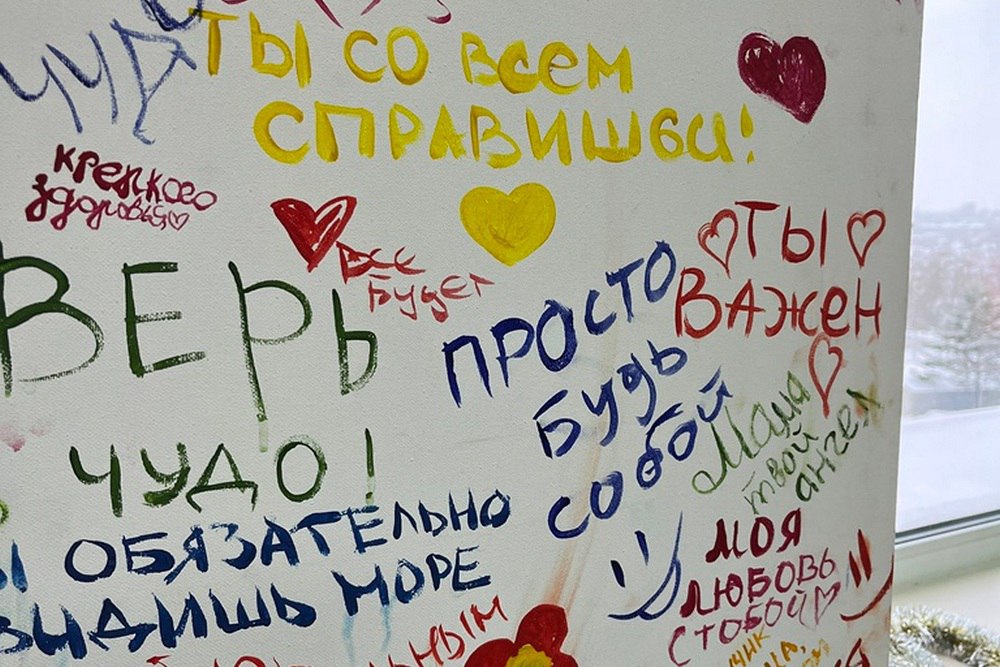 ЧУД
ТЫ СО ВСЕМ
СПРАВИШЬСИ!
крепкого
здоровья
ТЫ
ВАЖЕН
ВСЕ
БУДЕТ
ПРОСТО
БУДЬ
СОБОЙ
ВЕРЬ
ЧУДО!
Мама
твой
ангел
Ы ОБЯЗАТЕЛЬНО
ВИДИШЬ МОРЕ
МОЯ
ЛЮБОВЬ
С ТОБОЙ
ЬНЫМ